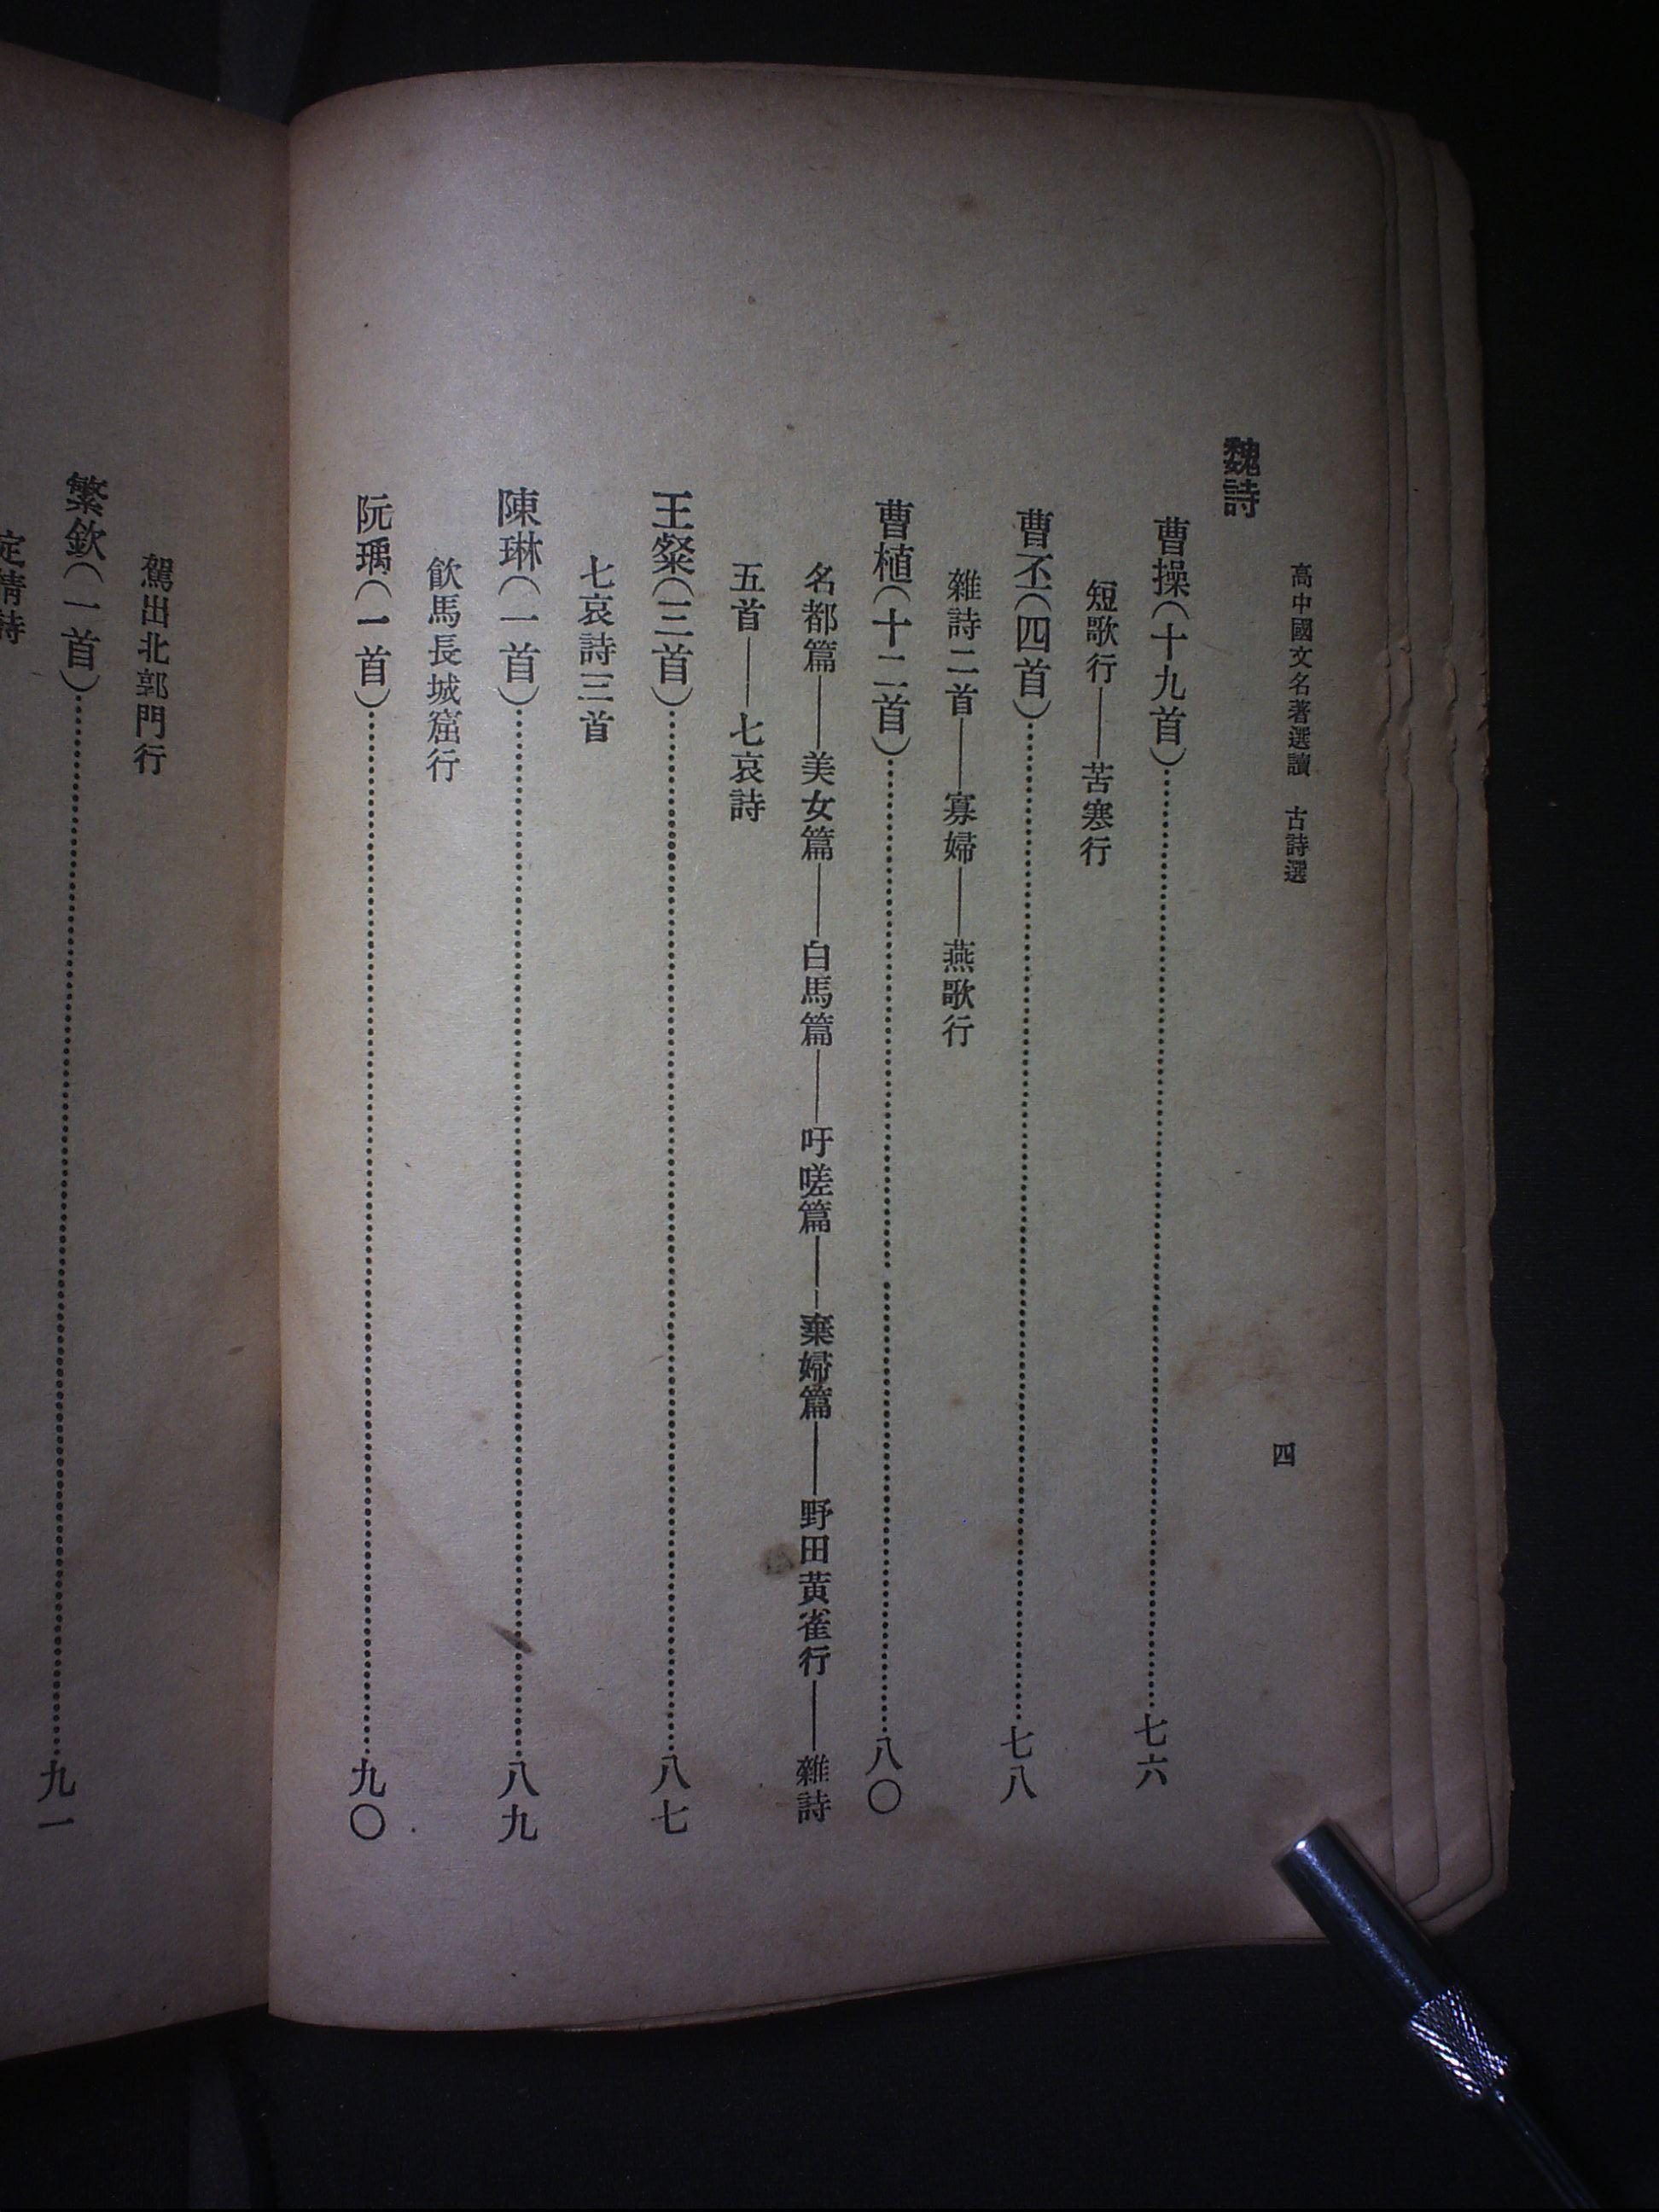 高中國文名著選讀　古詩選
四
魏詩
曹操（十九首）……七六
短歌行——苦寒行
曹丕（四首）……七八
雜詩二首——寡婦——燕歌行
曹植（十二首）……八〇
名都篇——美女篇——白馬篇——吁嗟篇——棄婦篇——野田黃雀行——雜詩
五首——七哀詩
王粲（三首）……八七
七哀詩三首
陳琳（一首）……八九
飲馬長城窟行
阮瑀（一首）……九〇
駕出北郭門行
繁欽（一首）……九一
定情詩